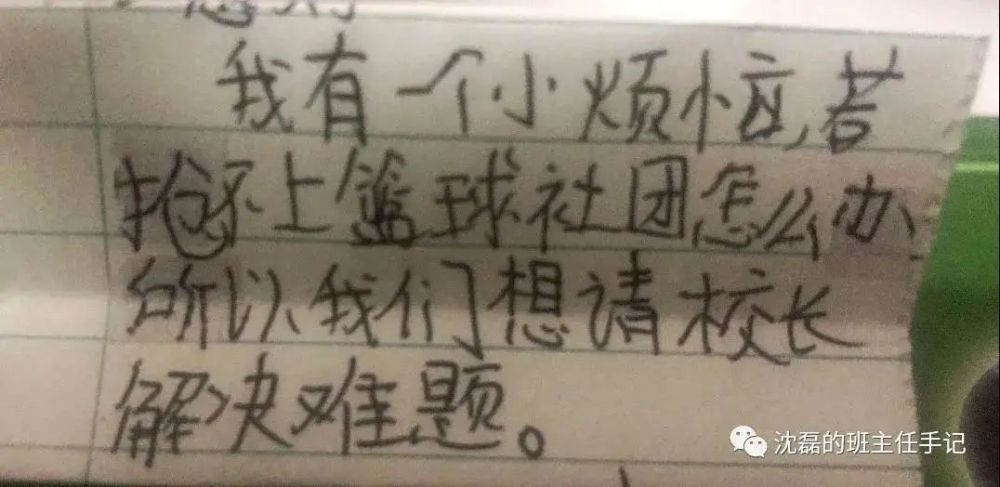 我有一个小烦恼,若
抢不上篮球社团怎么办
所以我们想请校长
解决难题。
沈磊的班主任手记